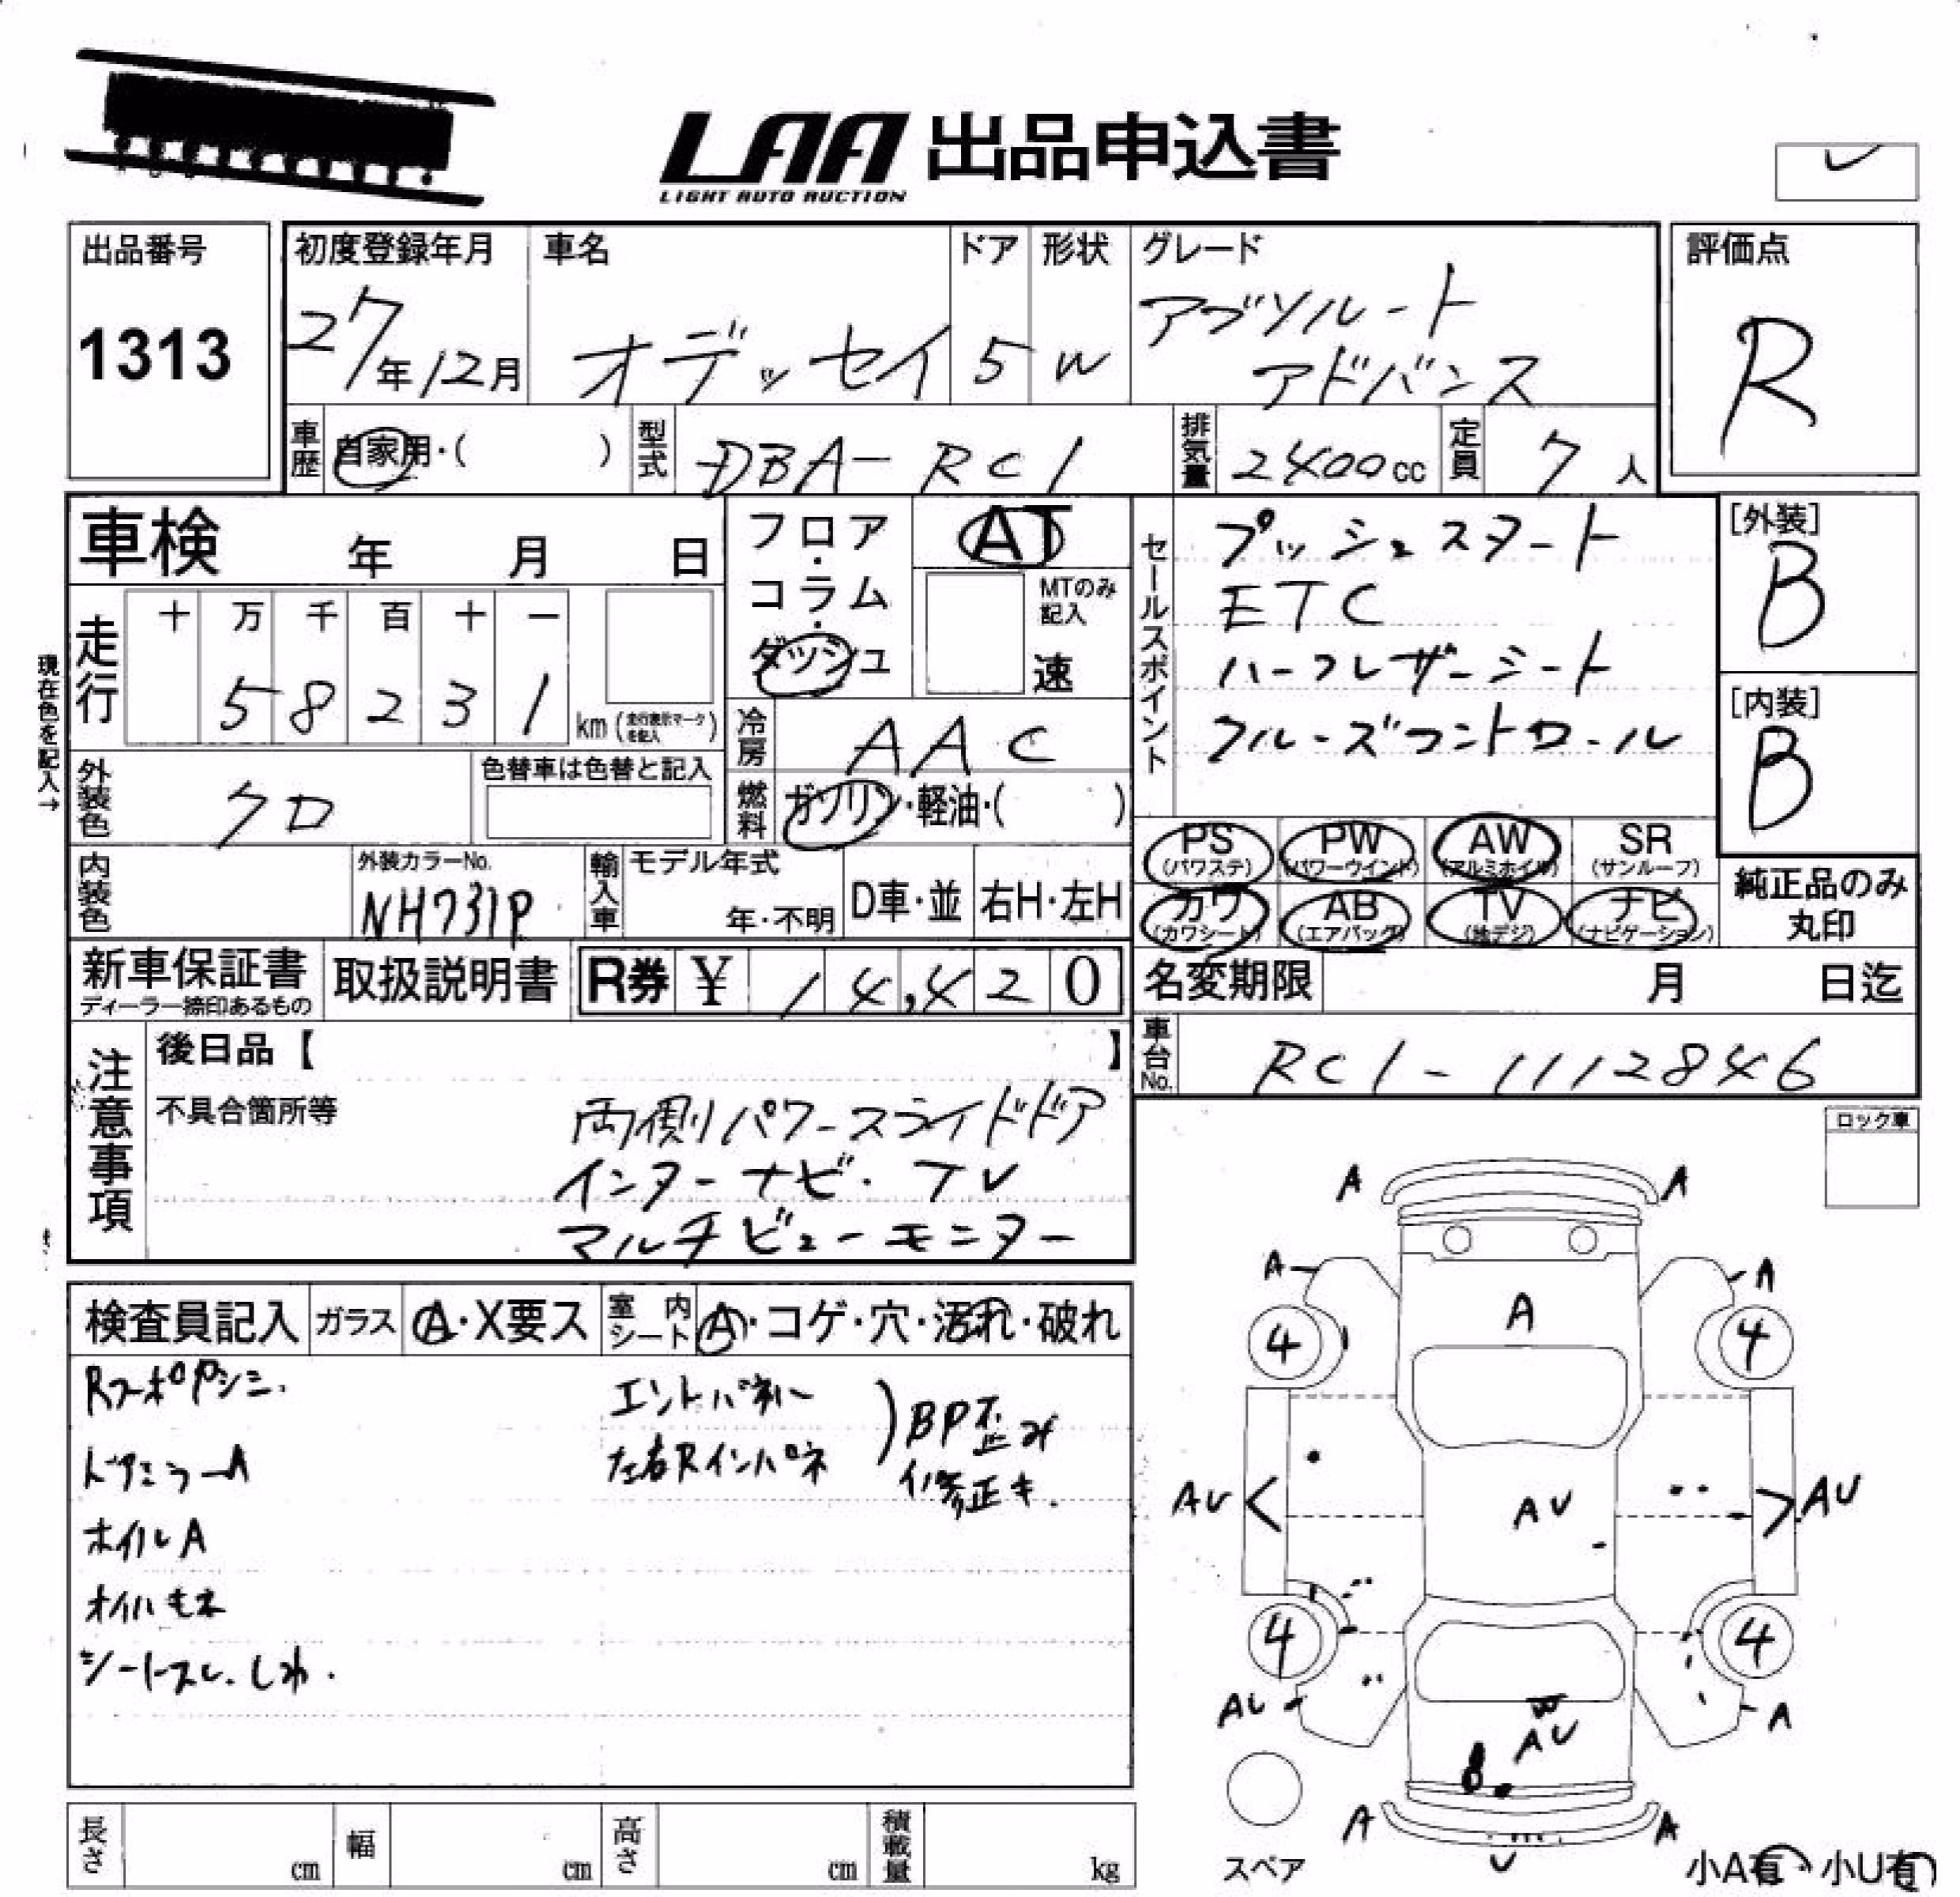 LAA 出品申込書
LIGHT AUTO AUCTION
出品番号
1313
初度登録年月
27年12月
車名
オデッセイ
ドア
5
形状
W
グレード
アブソルート
アドバンス
評価点
R
車歴
自家用・( )
型式
DBA-RC1
排気量
2400cc
定員
7人
車検 年 月 日
フロア・コラム・ダッシュ
AT
MTのみ記入
速
セールスポイント
プッシュスタート
ETC
ハーフレザーシート
クルーズコントロール
[外装]
B
[内装]
B
現在色を記入→
走行
十 万 千 百 十 一
5 8 2 3 1
km (走行表示マークを記入)
冷房
AAC
外装色
クロ
色替車は色替と記入
燃料
ガソリン・軽油・( )
PS (パワステ)
PW (パワーウインド)
AW (アルミホイル)
SR (サンルーフ)
カワ (カワシート)
AB (エアバック)
TV (地デジ)
ナビ (ナビゲーション)
純正品のみ丸印
内装色
外装カラーNo.
NH731P
輸入車
モデル年式
年・不明
D車・並
右H・左H
新車保証書
ディーラー捺印あるもの
取扱説明書
R券 ¥ 14,420
名変期限 月 日迄
車台No.
RC1-1112846
注意事項
後日品【 】
不具合箇所等
両側パワースライドドア
インターナビ・TV
マルチビューモニター
ロック車
検査員記入
ガラス
A・X要ス
室内シート
A・コゲ・穴・汚れ・破れ
ドアミラーA
ホイルA
エンドパネル
左右Rインパネ
BP歪み
修正キ.
A A
A A
A
4 4
AU AU AU
4 4
AU A
W
AU
A A
U
スペア
小A有・小U有
長さ cm
幅 cm
高さ cm
積載量 kg